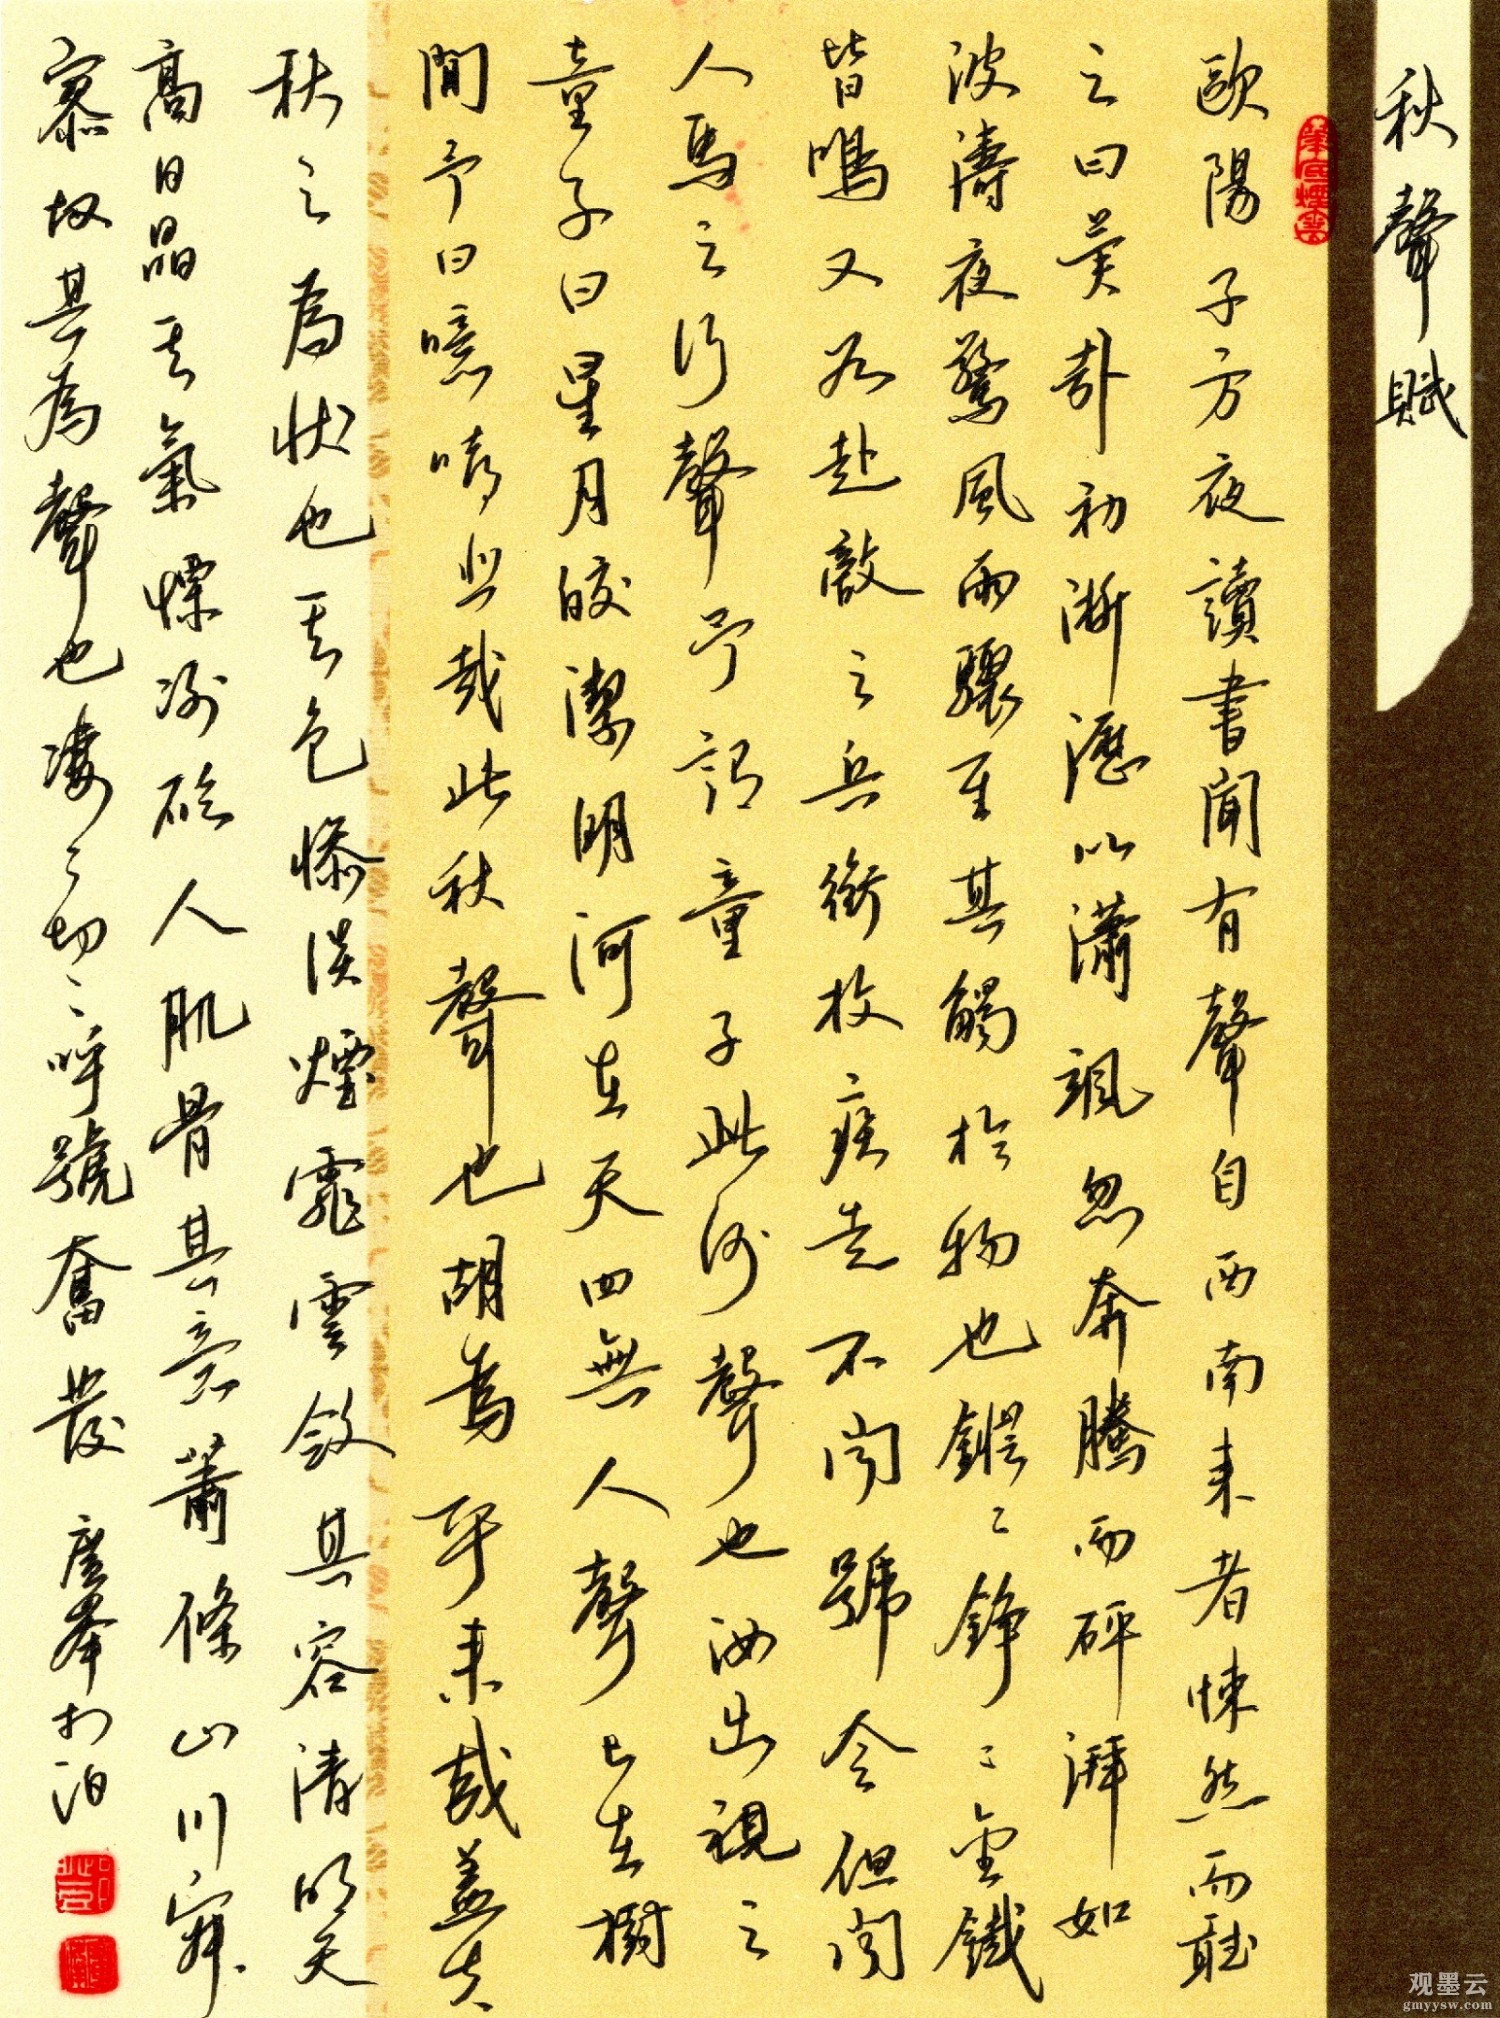 秋聲賦
歐陽子方夜讀書聞有聲自西南来者悚然而聽
之曰異哉初淅瀝以瀟颯忽奔騰而砰湃如
波濤夜驚風雨驟至其觸於物也鏦〻錚〻金鐵
皆鳴又如赴敵之兵銜枚疾走不聞號令但聞
人馬之行聲予謂童子此何聲也汝出視之
童子曰星月皎潔明河在天四無人聲〻在樹
間予曰噫嘻悲哉此秋聲也胡為乎来哉蓋夫
秋之為狀也其色慘淡煙霏雲斂其容清明天
高日晶其氣慄冽砭人肌骨其意蕭條山川寂
寥故其為聲也淒〻切〻呼號奮發
观墨云
gmyysw.com